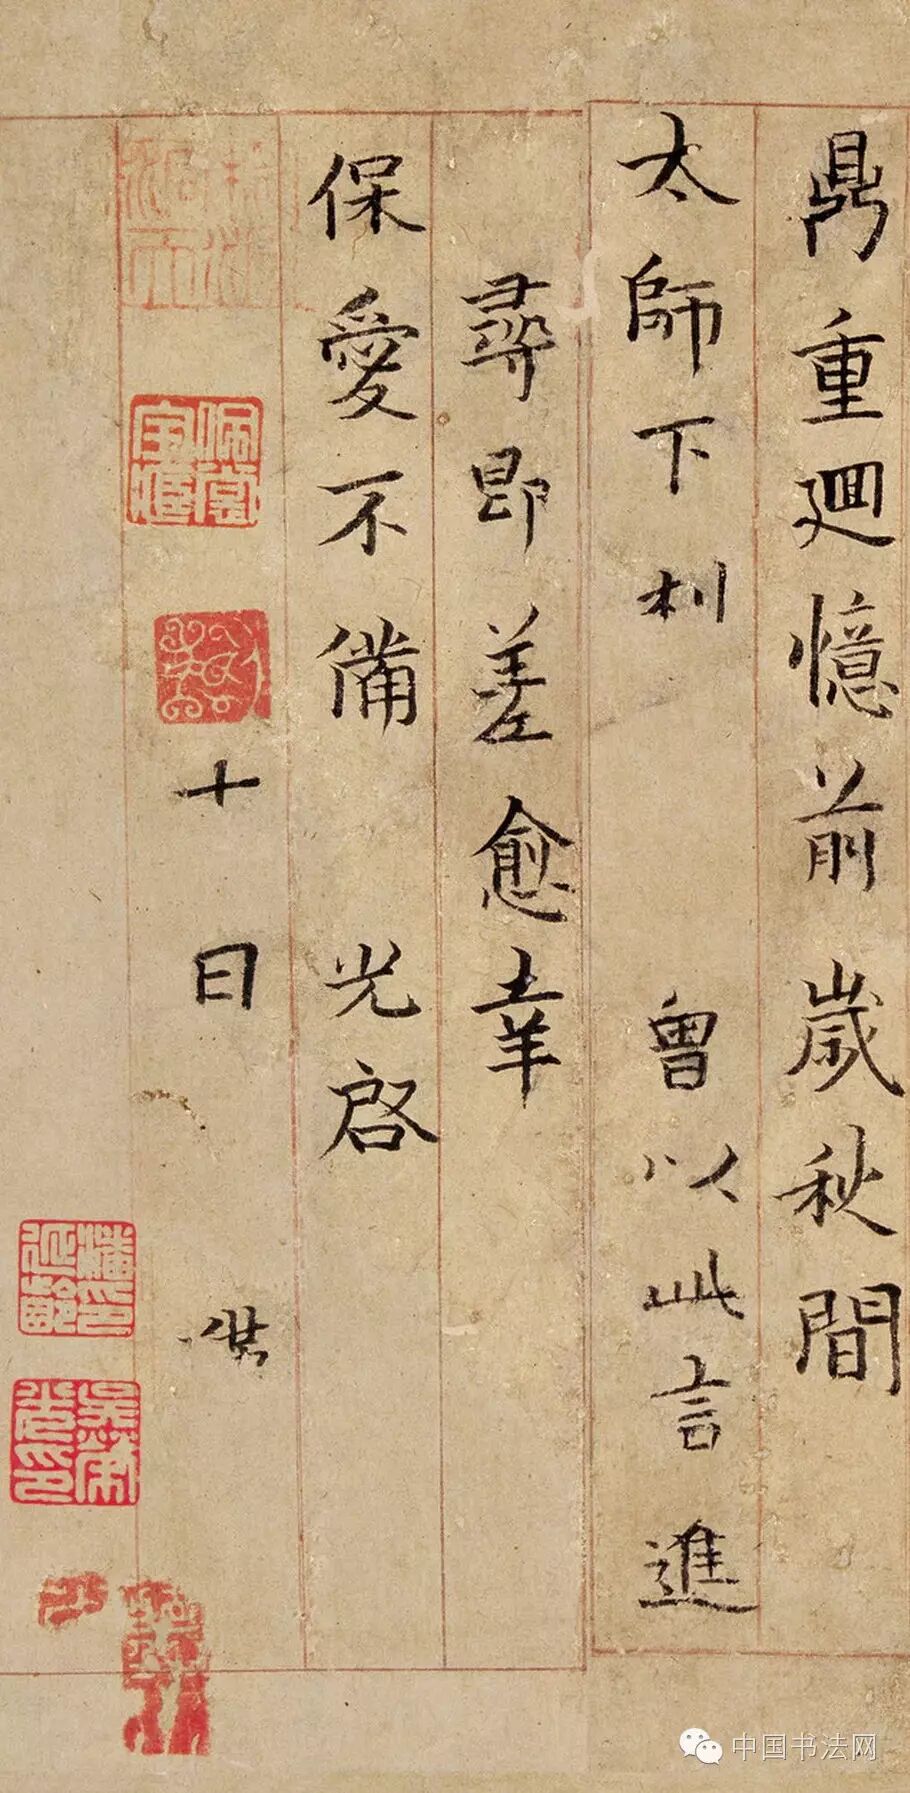 鼎重廻憶前歲秋間
太師下利 曾以此言進
尋即差愈幸
保愛不備 光啓
十日
吳榮光印
中国书法网